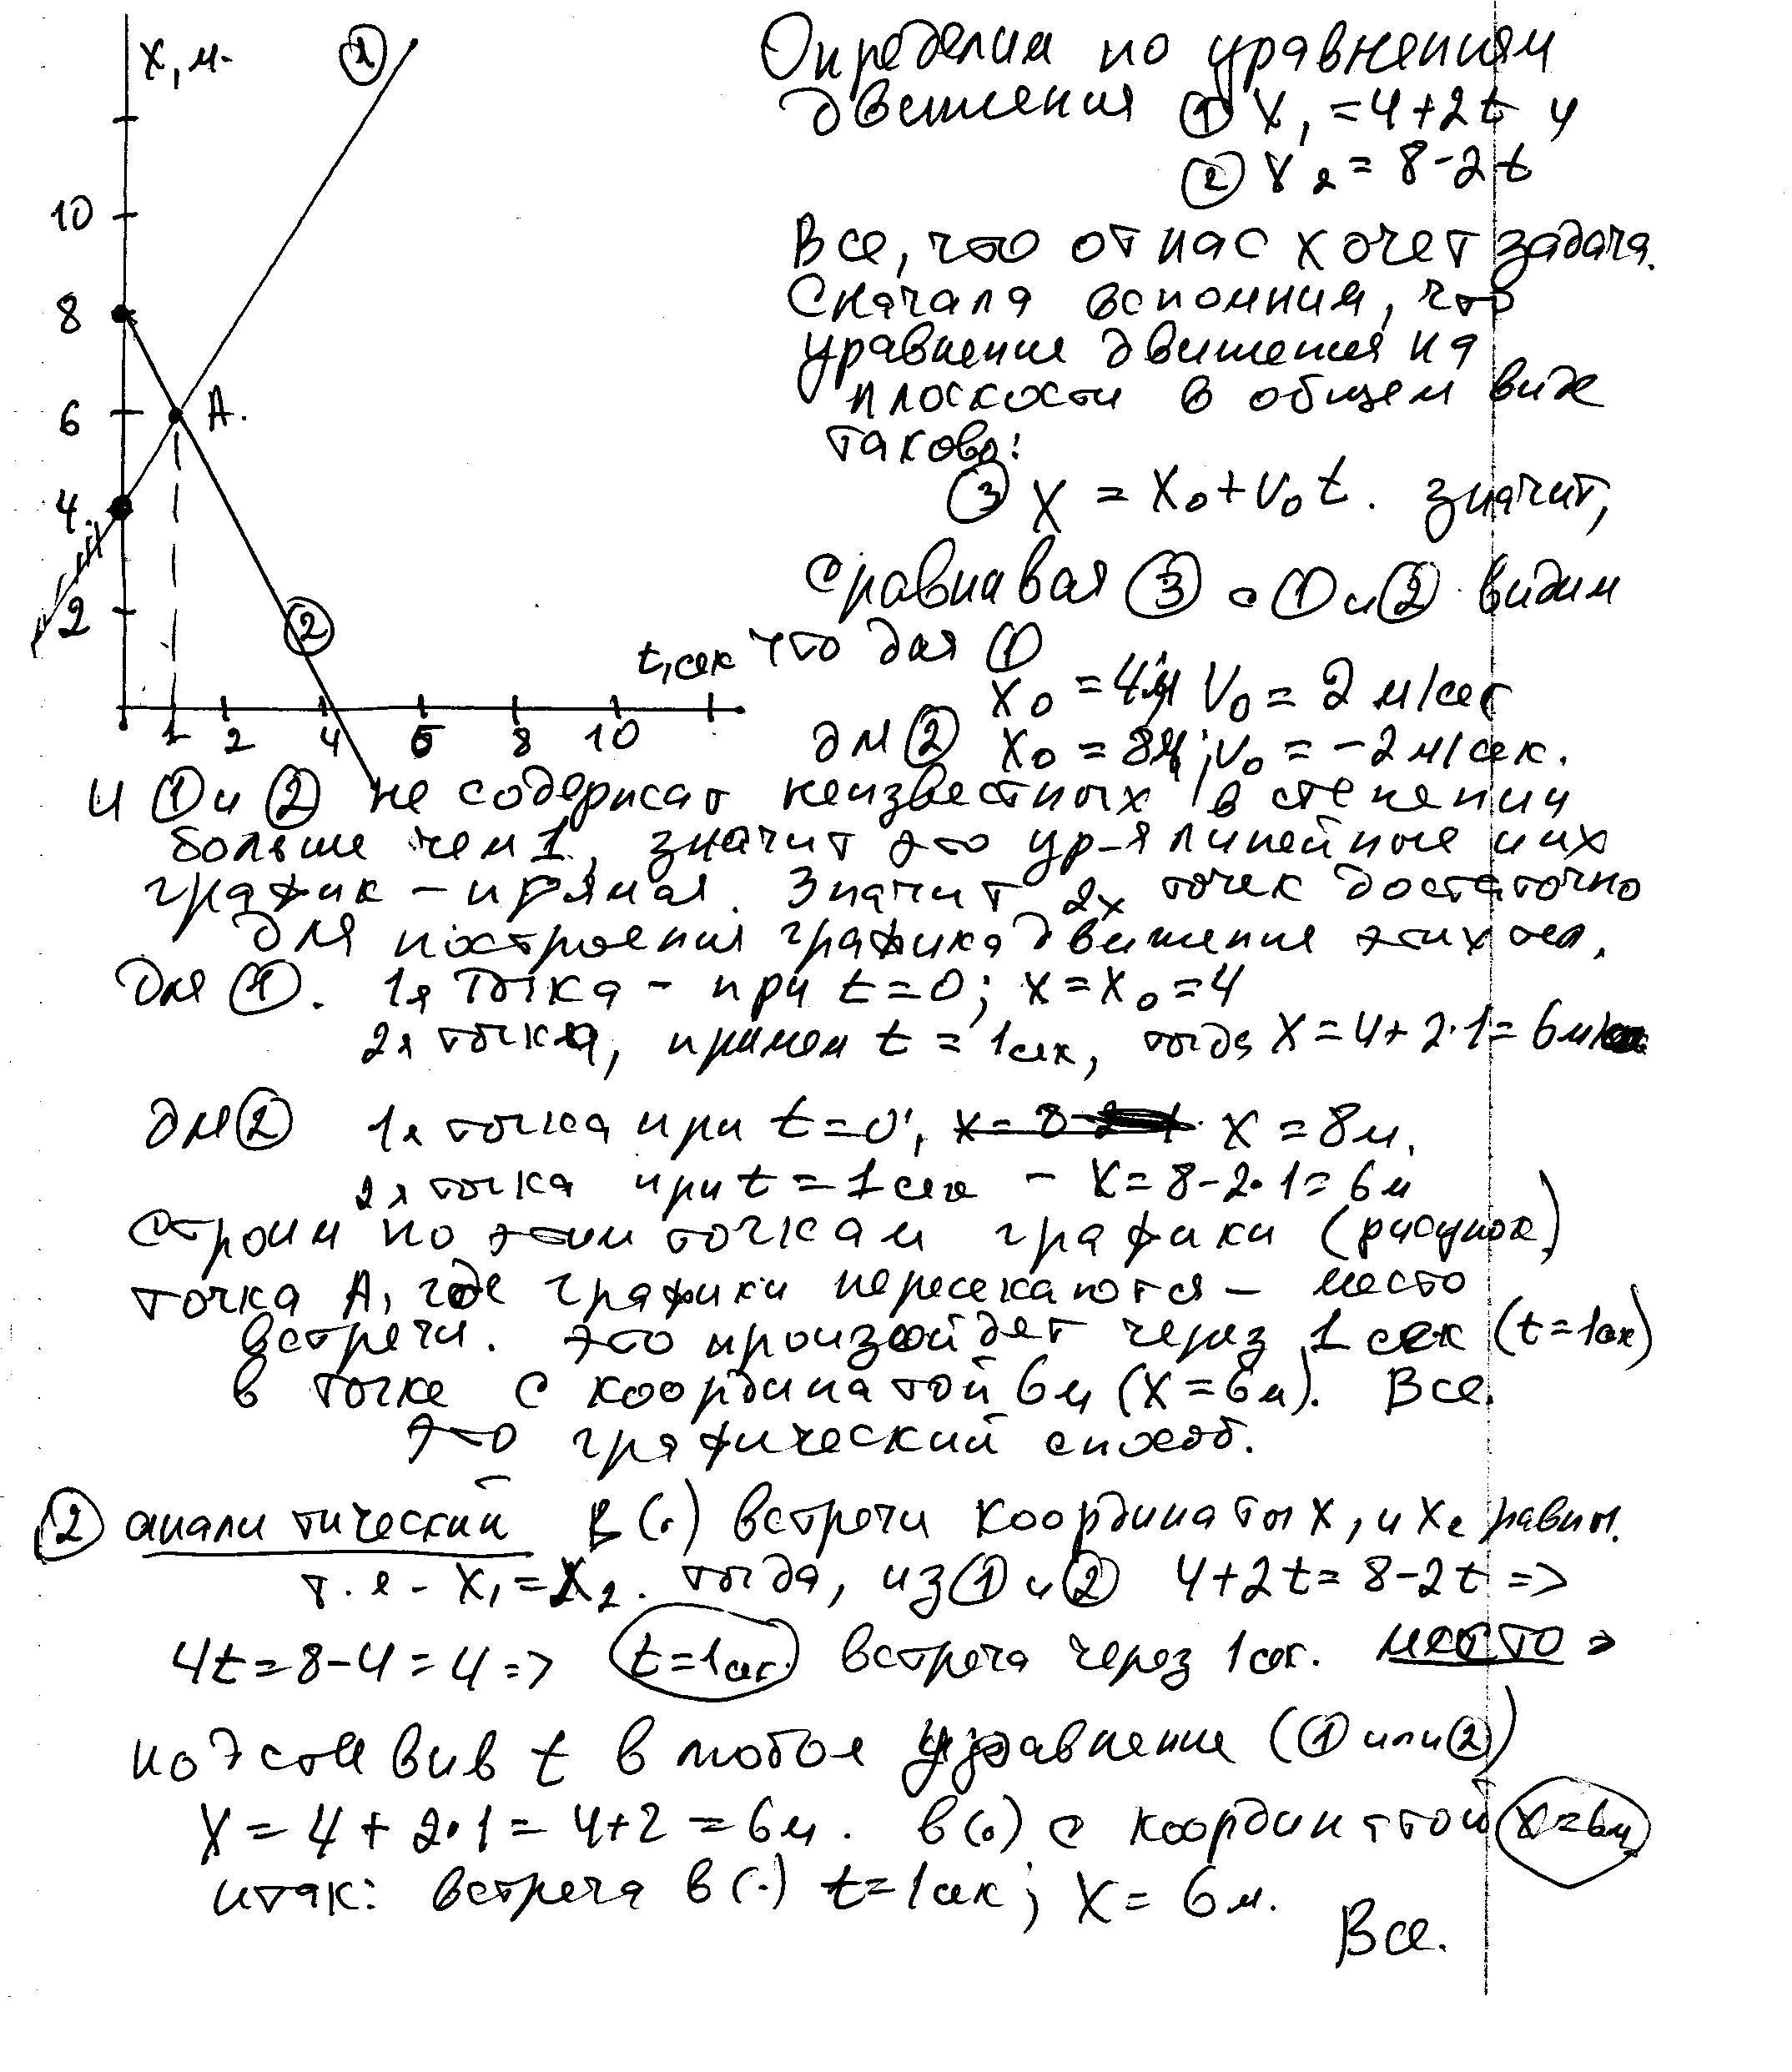 x, м.
1
10
8
6
A.
4
2
2
t, сек
1 2 4 6 8 10
Определим по уравнениям
движения ① X₁ = 4+2t и
② X₂ = 8-2t
Все, что от нас хочет задача.
Сначала вспомним, что
уравнение движения на
плоскости в общем виде
таково:
③ X = X₀+V₀t. значит,
сравнивая ③ с ① и ② видим
что для ①
X₀ = 4м V₀ = 2 м/сек
для ② X₀ = 8м; V₀ = -2 м/сек.
и ① и ② не содержат неизвестных в степени
больше чем 1, значит это ур-я линейные и их
график - прямая. Значит 2х точек достаточно
для построения графика движения этих тел.
Для ①. 1я точка - при t=0; x=x₀=4
2я точка, примем t = 1сек, тогда X=4+2·1=6м
для ② 1я точка при t=0; X=8м.
2я точка при t=1сек - X=8-2·1=6м
Строим по этим точкам графики (рисунок)
точка A, где графики пересекаются - место
встречи. это произойдет через 1 сек (t=1сек)
в точке с координатой 6м (X=6м). Все.
Это графический способ.
② аналитический В (·) встречи координаты X₁ и X₂ равны.
т.е - X₁=X₂. тогда, из ① и ② 4+2t=8-2t =>
4t=8-4=4 => t=1сек. встреча через 1сек. место =>
подставив t в любое уравнение (① или ②)
X = 4+2·1=4+2=6м. в(·) с координатой X=6м
итак: встреча в (·) t=1сек; X=6м.
Все.